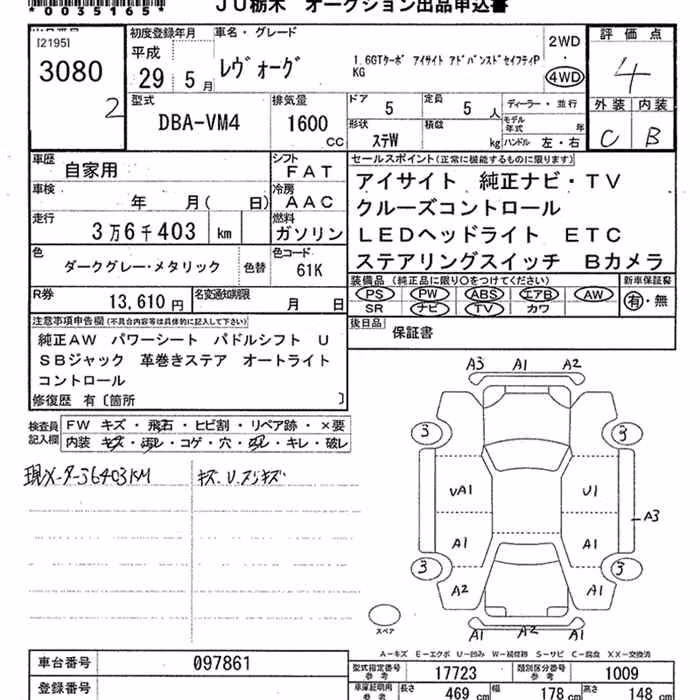 *0035165*
JU栃木 オークション出品申込書
[2195]
3080
2
初度登録年月
平成
29 5月
車名・グレード
レヴォーグ
1.6GTターボ アイサイト アドバンスドセイフティP
KG
2WD
4WD
評価点
4
外装 内装
C B
型式
DBA-VM4
排気量
1600
CC
ドア
5
定員
5人
ディーラー・並行
形状
ステW
積載
kg
モデル
年式
年
ハンドル 左・右
車歴
自家用
シフト
FAT
車検
年 月( 日)
冷房
AAC
走行
3万6千403 km
燃料
ガソリン
色
ダークグレー・メタリック
色替
色コード
61K
R券
13,610円
名変通知期限
月 日
セールスポイント(正常に機能するものに限ります)
アイサイト 純正ナビ・TV
クルーズコントロール
LEDヘッドライト ETC
ステアリングスイッチ Bカメラ
装備品(純正品に限り○をつけてください)
PS PW ABS エアB AW
SR ナビ TV カワ
新車保証書
有・無
後日品
保証書
注意事項申告欄(不具合内容等は具体的に記入して下さい)
純正AW パワーシート パドルシフト U
SBジャック 革巻きステア オートライト
コントロール
修復歴 有〔箇所 〕
検査員
記入欄
FW キズ・飛石・ヒビ割・リペア跡・×要
内装 キズ・汚レ・コゲ・穴・凹レ・キレ・破レ
現メーター36403KM
キズ.U.スリキズ
A3 A1 A2
3 3
UA1 U1
A3
A1 A1
3 3
A2 A1
A1 A2
A1
スペア
A-キズ E-エクボ U-凹み W-補修跡 S-サビ C-腐食 XX-交換済
車台番号
097861
登録番号
型式指定番号
参考
17723
類別区分番号
参考
1009
車庫証明用
参考
長さ
469 cm
幅
178 cm
高さ
148 cm